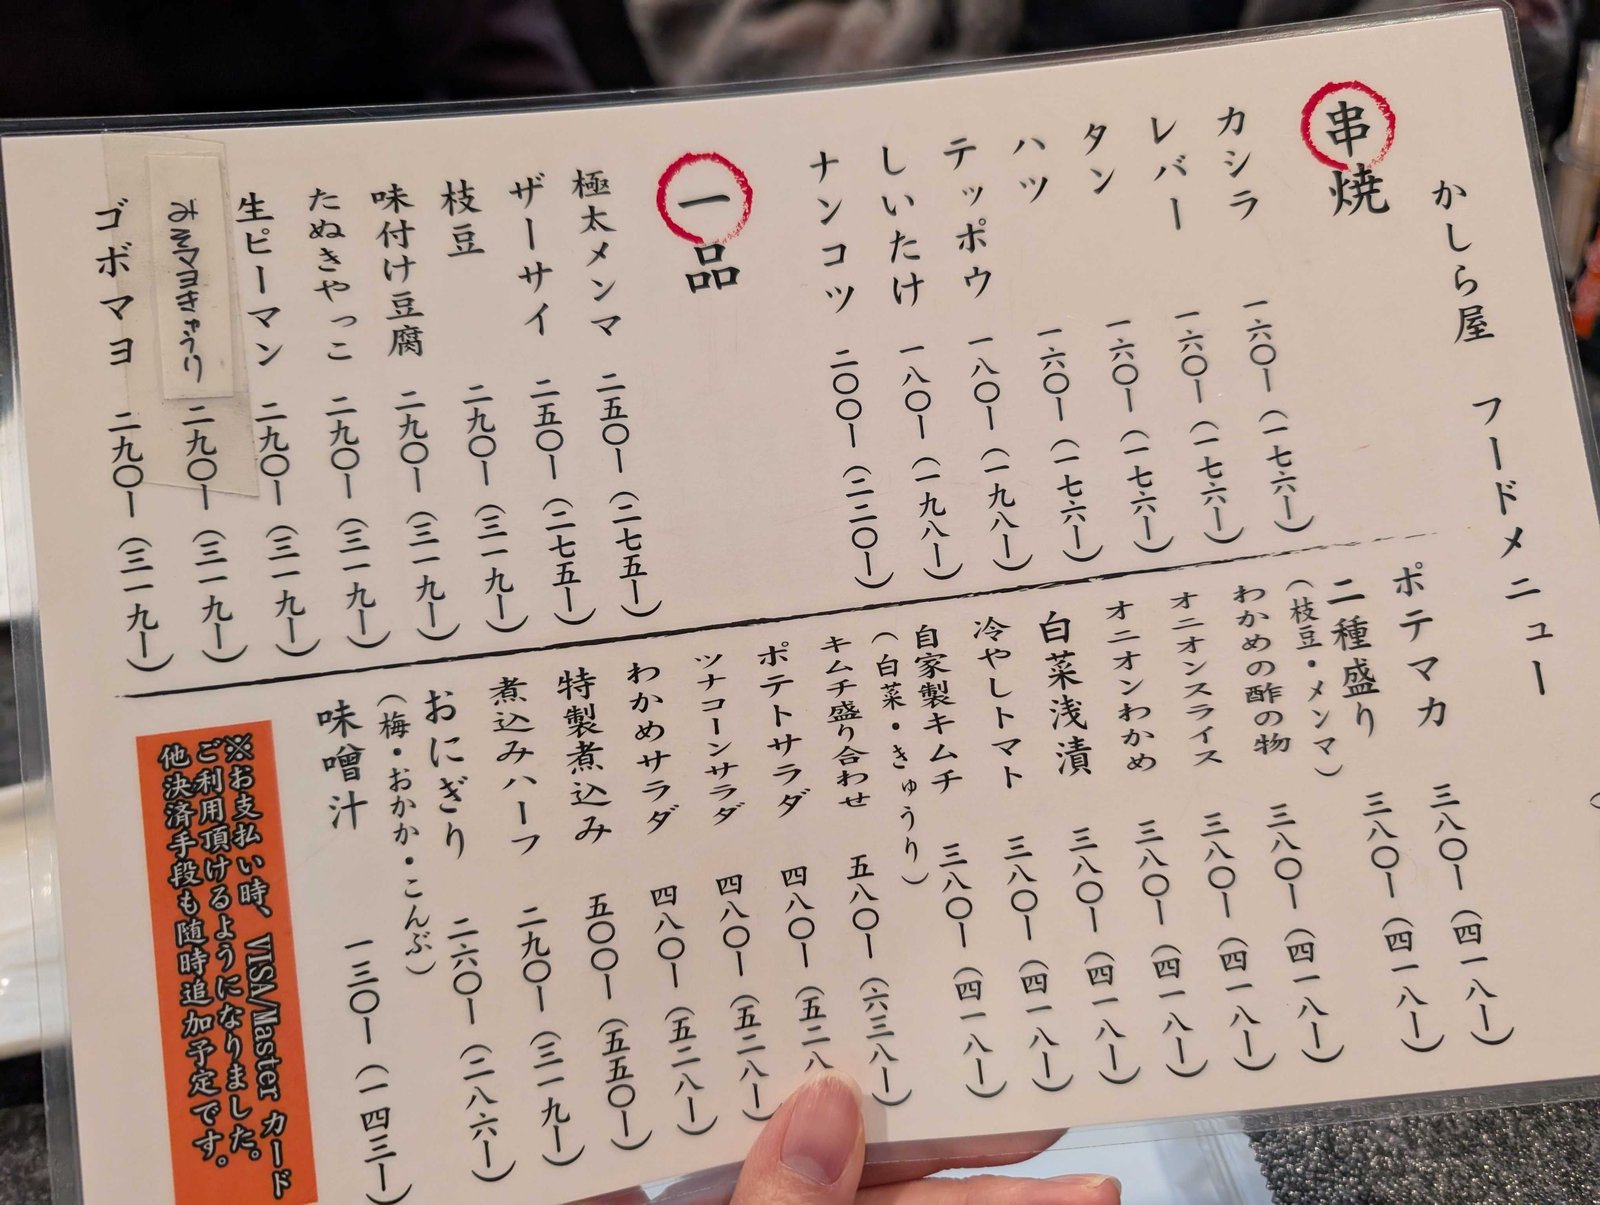 かしら屋 フードメニュー
串焼
カシラ 一六〇ー（一七六ー）
レバー 一六〇ー（一七六ー）
タン 一六〇ー（一七六ー）
ハツ 一六〇ー（一七六ー）
テッポウ 一八〇ー（一九八ー）
しいたけ 一八〇ー（一九八ー）
ナンコツ 二〇〇ー（二二〇ー）
一品
極太メンマ 二五〇ー（二七五ー）
ザーサイ 二五〇ー（二七五ー）
枝豆 二九〇ー（三一九ー）
味付け豆腐 二九〇ー（三一九ー）
たぬきやっこ 二九〇ー（三一九ー）
生ピーマン 二九〇ー（三一九ー）
みそマヨきゅうり 二九〇ー（三一九ー）
ゴボマヨ 二九〇ー（三一九ー）
ポテマカ 三八〇ー（四一八ー）
二種盛り 三八〇ー（四一八ー）
（枝豆・メンマ）
わかめの酢の物 三八〇ー（四一八ー）
オニオンスライス 三八〇ー（四一八ー）
オニオンわかめ 三八〇ー（四一八ー）
白菜浅漬 三八〇ー（四一八ー）
冷やしトマト 三八〇ー（四一八ー）
自家製キムチ 三八〇ー（四一八ー）
（白菜・きゅうり）
キムチ盛り合わせ 五八〇ー（六三八ー）
ポテトサラダ 四八〇ー（五二八
ツナコーンサラダ 四八〇ー（五二八ー）
わかめサラダ 四八〇ー（五二八ー）
特製煮込み 五〇〇ー（五五〇ー）
煮込みハーフ 二九〇ー（三一九ー）
おにぎり 二六〇ー（二八六ー）
（梅・おかか・こんぶ）
味噌汁 一三〇ー（一四三ー）
※お支払い時、VISA/Masterカード
ご利用頂けるようになりました。
他決済手段も随時追加予定です。